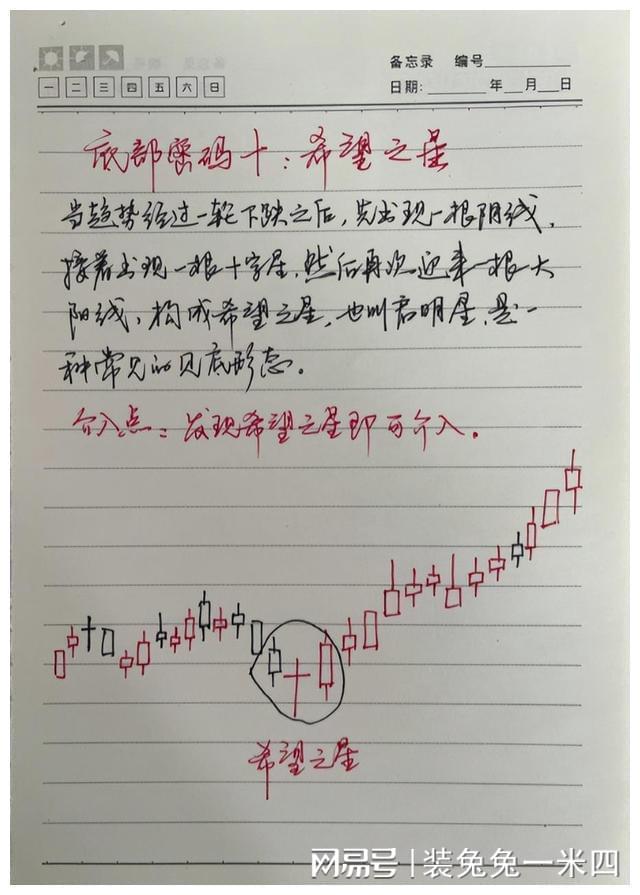 备忘录 编号
一 二 三 四 五 六 日
日期: 年 月 日
底部密码十：希望之星
当趋势经过一轮下跌之后，先出现一根阴线，
接着出现一根十字星，然后再次迎来一根大
阳线，构成希望之星，也叫启明星，是一
种常见的见底形态。
介入点：发现希望之星即可介入。
希望之星
网易号 | 装兔兔一米四